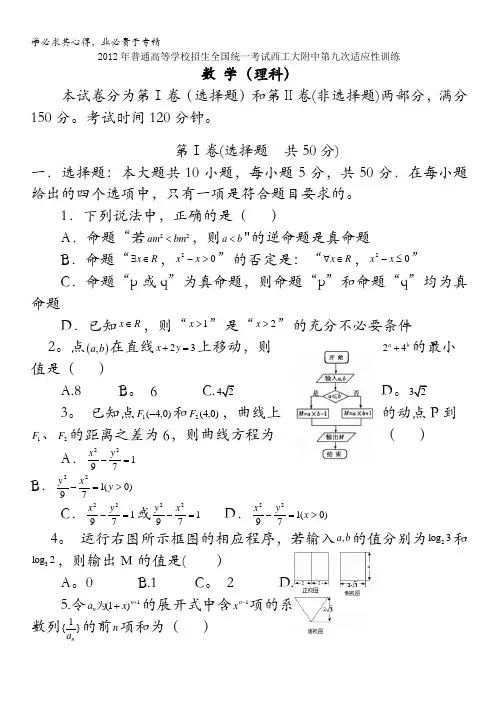 学必求其心得，业必贵于专精
2012年普通高等学校招生全国统一考试西工大附中第九次适应性训练
数 学（理科）
本试卷分为第Ⅰ卷（选择题）和第Ⅱ卷(非选择题)两部分，满分
150分。考试时间120分钟。
第Ⅰ卷(选择题 共50分)
一．选择题：本大题共10小题，每小题5分，共50分．在每小题
给出的四个选项中，只有一项是符合题目要求的。
1．下列说法中，正确的是（ ）
A．命题“若am²<bm²，则a<b"的逆命题是真命题
B．命题“∃x∈R，x²-x>0”的否定是：“∀x∈R，x²-x≤0”
C．命题“p或q”为真命题，则命题“p”和命题“q”均为真
命题
D．已知x∈R，则“x>1”是“x>2”的充分不必要条件
2。点(a,b)在直线x+2y=3上移动，则 2^a+4^b的最小
值是（ ）
A.8 B。 6 C.4√2 D。3√2
3。 已知点F₁(-4,0)和F₂(4,0)，曲线上 的动点P到
F₁、F₂的距离之差为6，则曲线方程为 （ ）
A．x²/9-y²/7=1
B．y²/9-x²/7=1(y>0)
C．x²/9-y²/7=1或y²/9-x²/7=1 D．x²/9-y²/7=1(x>0)
4。 运行右图所示框图的相应程序，若输入a,b的值分别为log₂3和
log₃2，则输出M的值是( )
A。0 B.1 C。 2 D.
5.令aₙ为(1+x)ⁿ⁺¹的展开式中含xⁿ⁻¹项的系
数列{1/aₙ}的前n项和为（ ）
开 始
输入a,b
是 a≤b 否
M=a×b-1 M=a×b+1
输出M
结 束
a
2 2 2√3
正视图 侧视图
2√3
俯视图